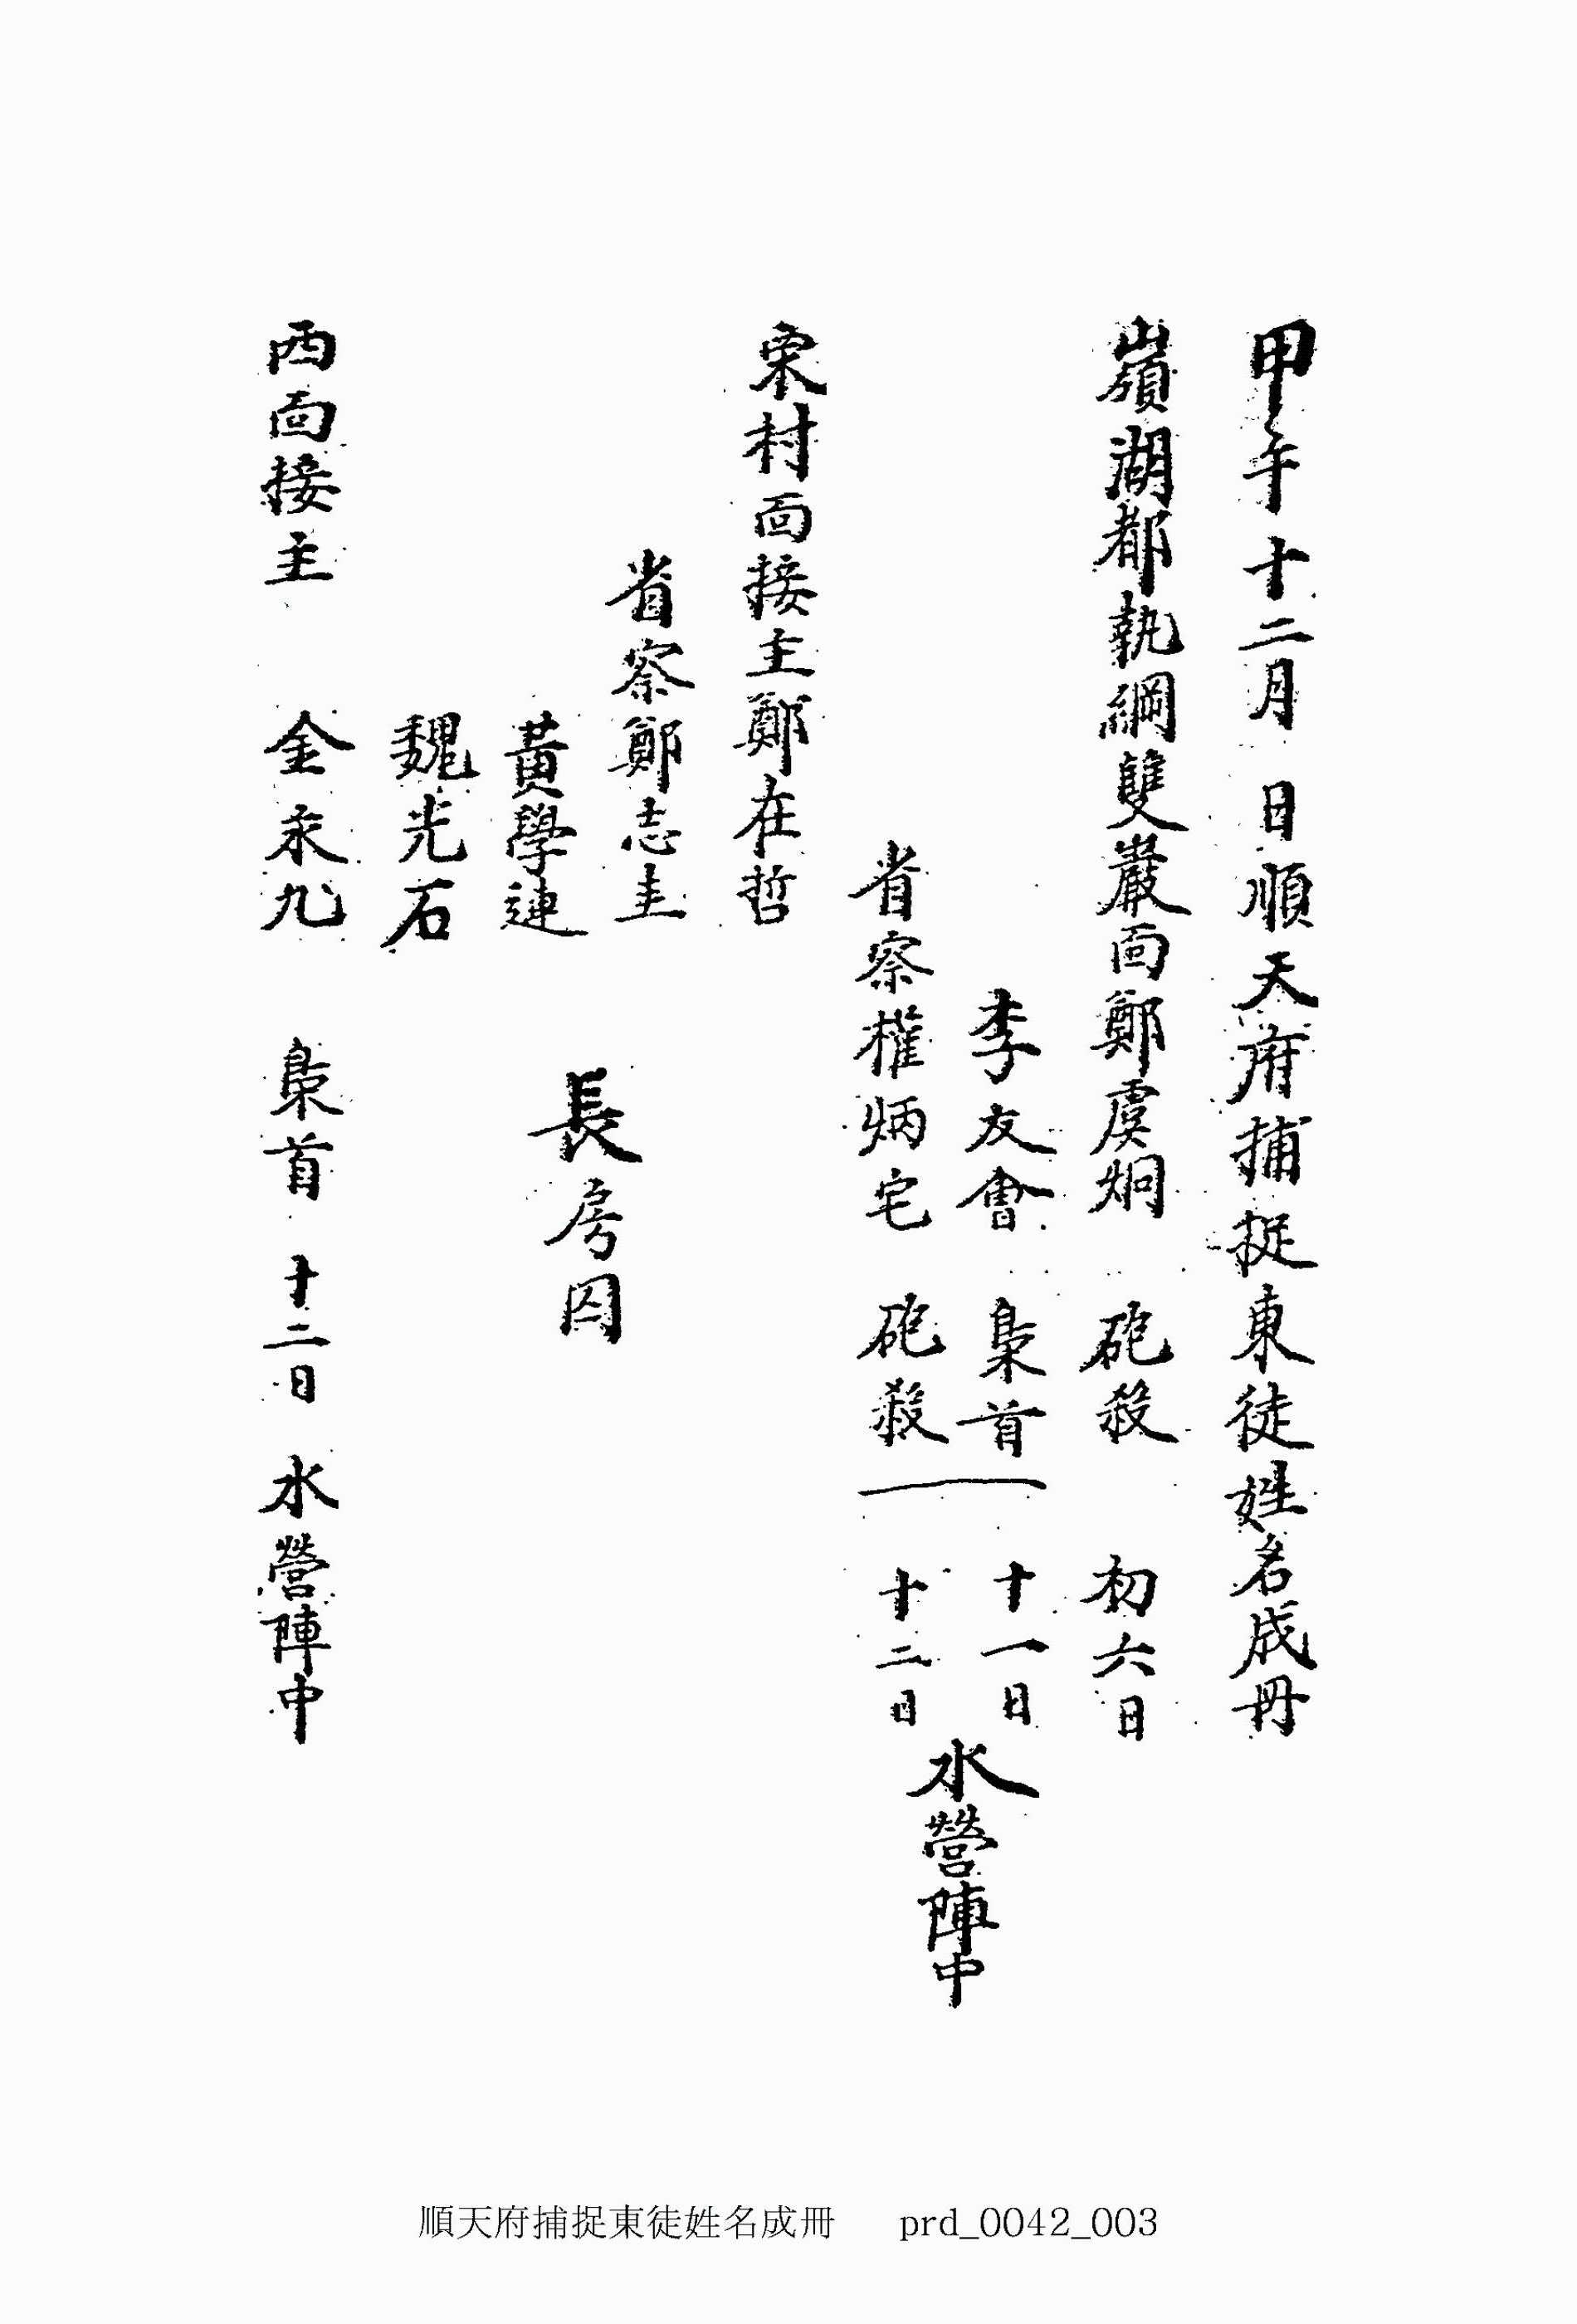 甲午十二月 日順天府捕捉東徒姓名成冊
嶺湖都執綱雙巖面鄭虞炯 砲殺 初六日
李友會 梟首 十一日
省察權炳宅 砲殺 十二日
水營陣中
栗村面接主鄭在哲
省察鄭志圭
黃學連
魏光石
長房囚
西面接主 金永九 梟首 十二日 水營陣中
順天府捕捉東徒姓名成冊 prd_0042_003